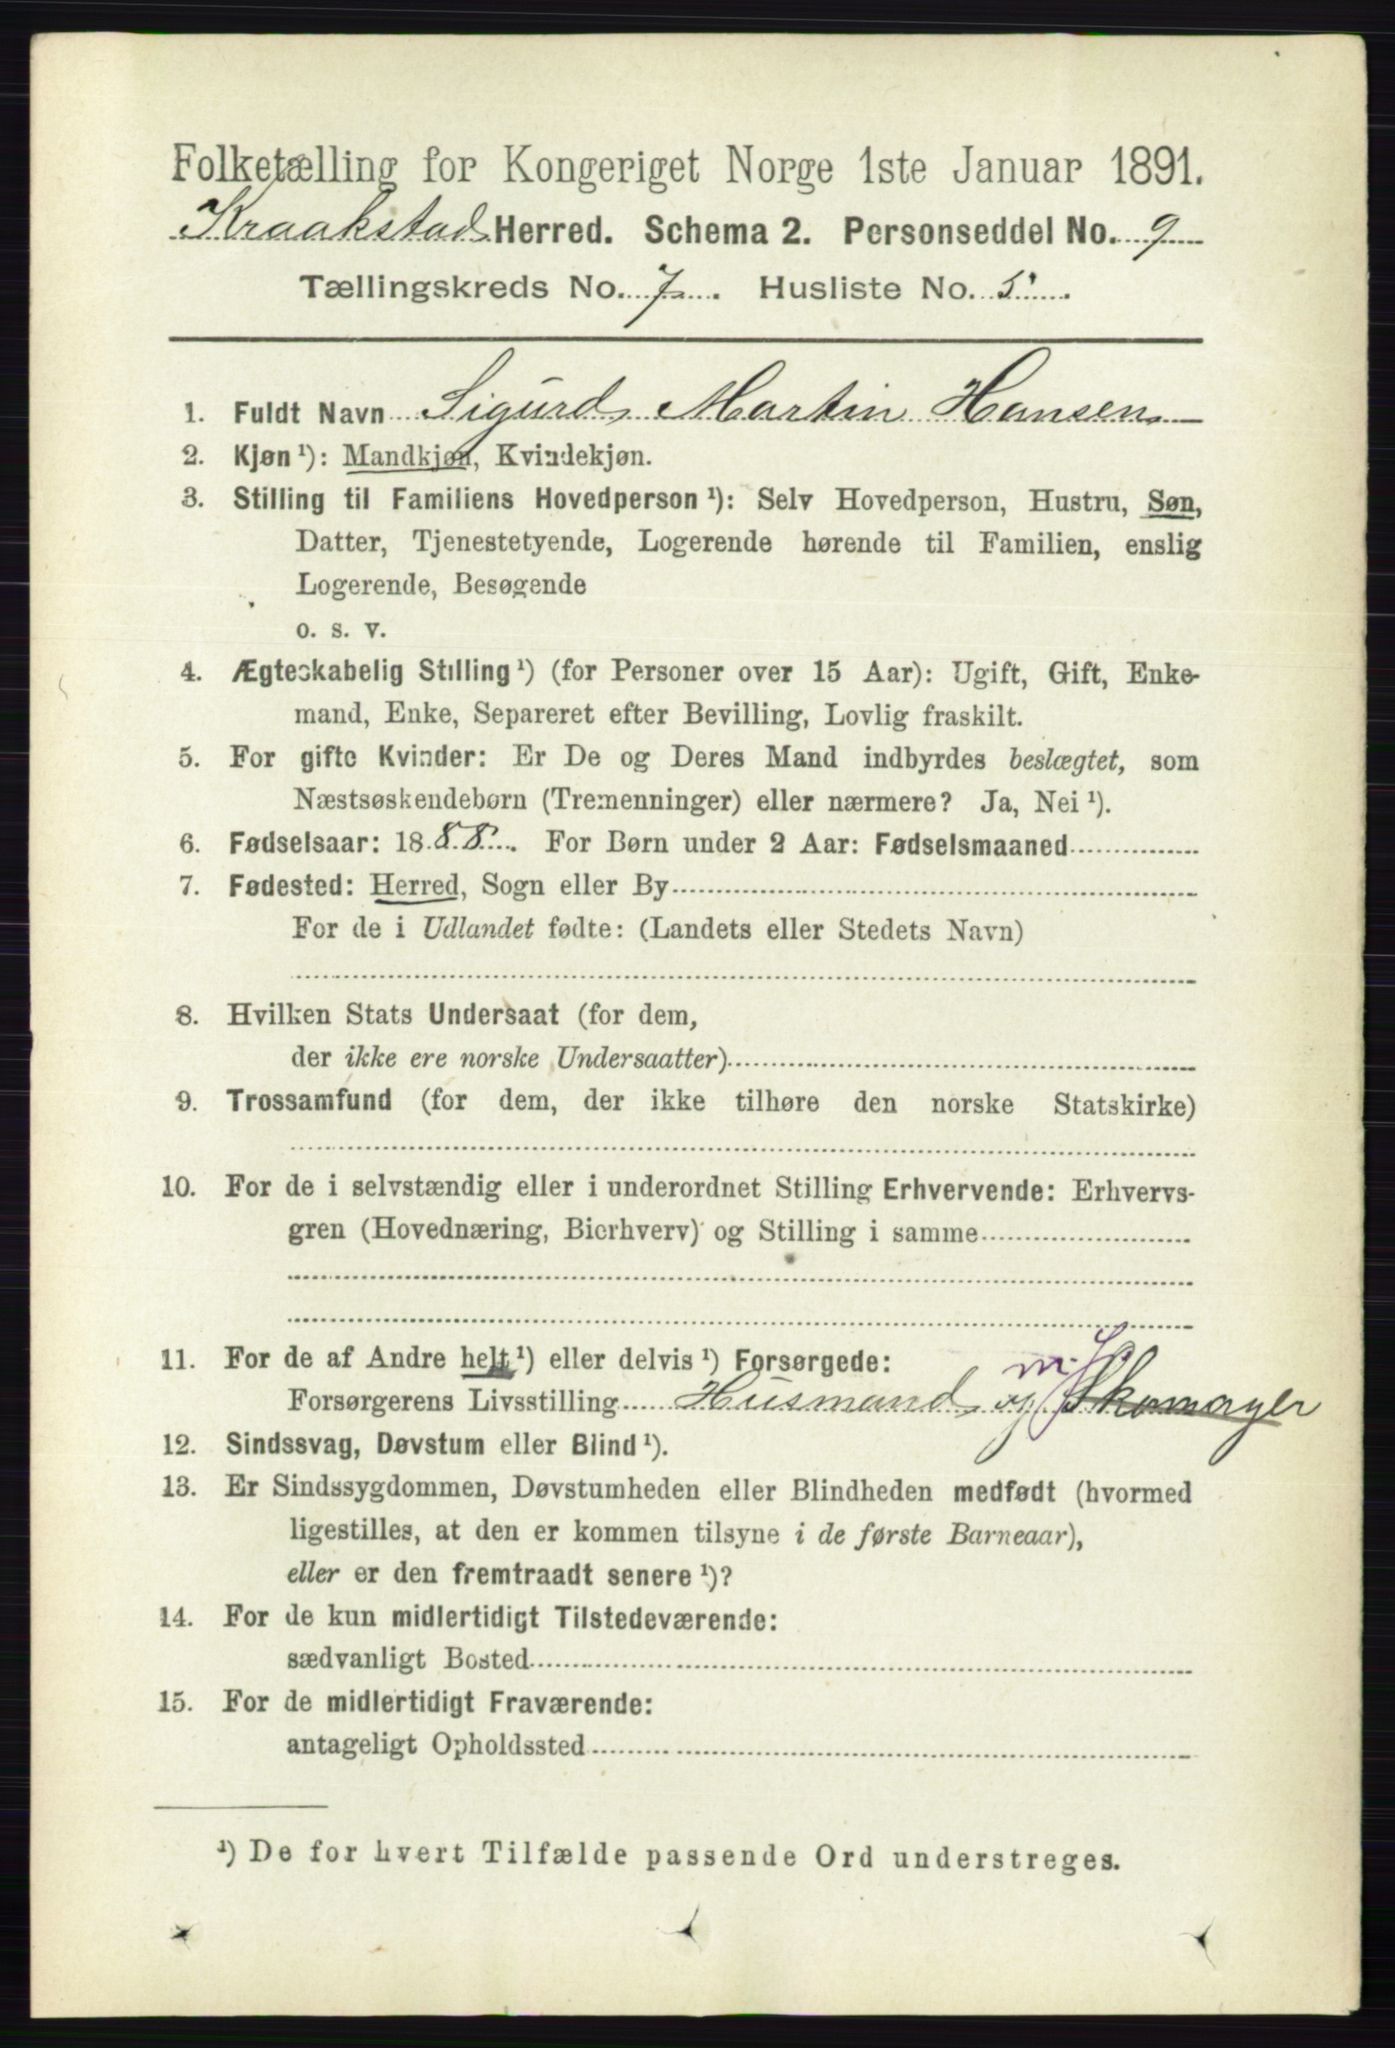 Folketælling for Kongeriget Norge 1ste Januar 1891.
Kraakstad Herred. Schema 2. Personseddel No. 9
Tællingskreds No. 7. Husliste No. 5.
1. Fuldt Navn Sigurd Martin Hansen
2. Kjøn ¹): Mandkjøn, Kvindekjøn.
3. Stilling til Familiens Hovedperson ¹): Selv Hovedperson, Hustru, Søn,
Datter, Tjenestetyende, Logerende hørende til Familien, enslig
Logerende, Besøgende
o. s. v.
4. Ægteskabelig Stilling ¹) (for Personer over 15 Aar): Ugift, Gift, Enke-
mand, Enke, Separeret efter Bevilling, Lovlig fraskilt.
5. For gifte Kvinder: Er De og Deres Mand indbyrdes beslægtet, som
Næstsøskendebørn (Tremenninger) eller nærmere? Ja, Nei ¹).
6. Fødselsaar: 1888. For Børn under 2 Aar: Fødselsmaaned
7. Fødested: Herred, Sogn eller By
For de i Udlandet fødte: (Landets eller Stedets Navn)
8. Hvilken Stats Undersaat (for dem,
der ikke ere norske Undersaatter)
9. Trossamfund (for dem, der ikke tilhøre den norske Statskirke)
10. For de i selvstændig eller i underordnet Stilling Erhvervende: Erhvervs-
gren (Hovednæring, Bierhverv) og Stilling i samme
11. For de af Andre helt ¹) eller delvis ¹) Forsørgede:
m. J.
Forsørgerens Livsstilling Husmand og Skomager
12. Sindssvag, Døvstum eller Blind ¹).
13. Er Sindssygdommen, Døvstumheden eller Blindheden medfødt (hvormed
ligestilles, at den er kommen tilsyne i de første Barneaar),
eller er den fremtraadt senere ¹)?
14. For de kun midlertidigt Tilstedeværende:
sædvanligt Bosted
15. For de midlertidigt Fraværende:
antageligt Opholdssted
¹) De for hvert Tilfælde passende Ord understreges.